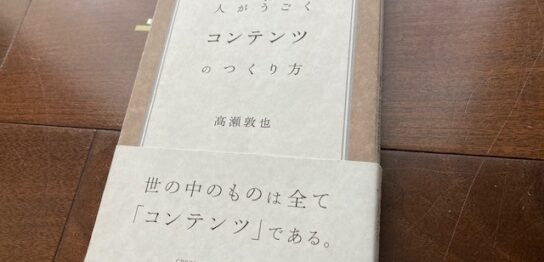 人がうごく
コンテンツ
のつくり方
高瀬敦也
世の中のものは全て
「コンテンツ」である。